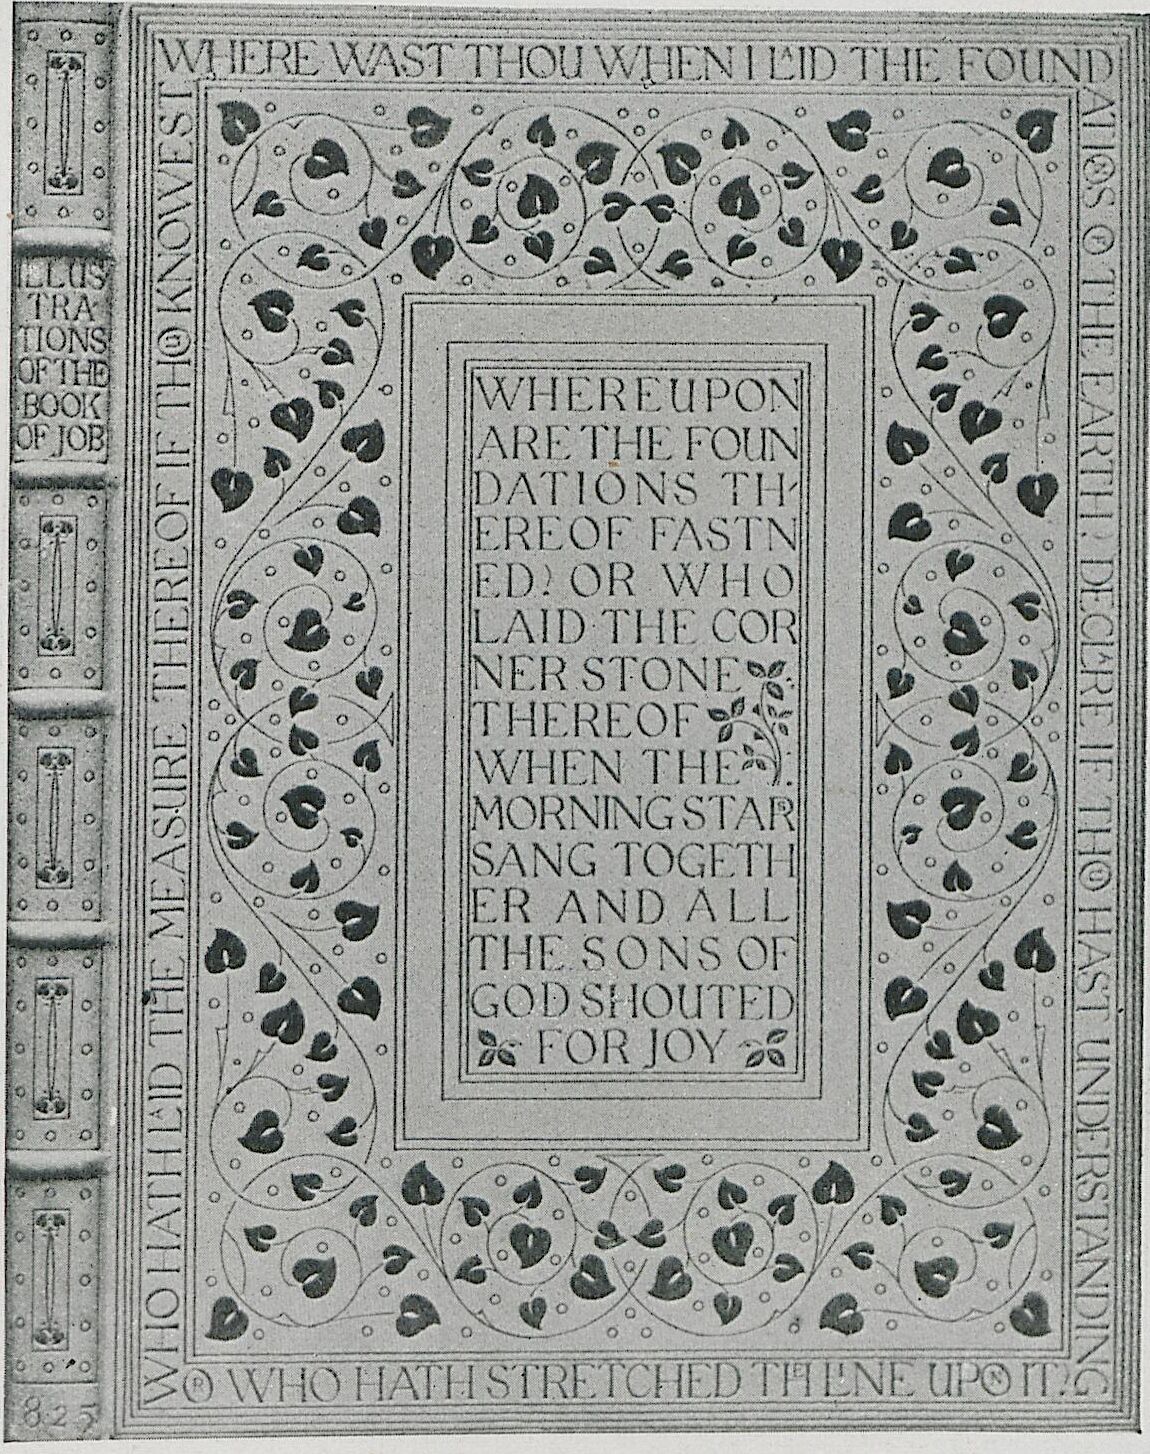 ILLUS
TRA
TIONS
OF THE
BOOK
OF JOB
1825
WHERE WAST THOU WHEN I LAID THE FOUND
ATIONS OF THE EARTH? DECLARE IF THOU HAST UNDERSTANDING
WHO HATH LAID THE MEASURE THEREOF IF THOU KNOWEST
OR WHO HATH STRETCHED THE LINE UPON IT?
WHEREUPON
ARE THE FOUN
DATIONS TH
EREOF FASTN
ED? OR WHO
LAID THE COR
NER STONE
THEREOF
WHEN THE
MORNING STARS
SANG TOGETH
ER AND ALL
THE SONS OF
GOD SHOUTED
FOR JOY